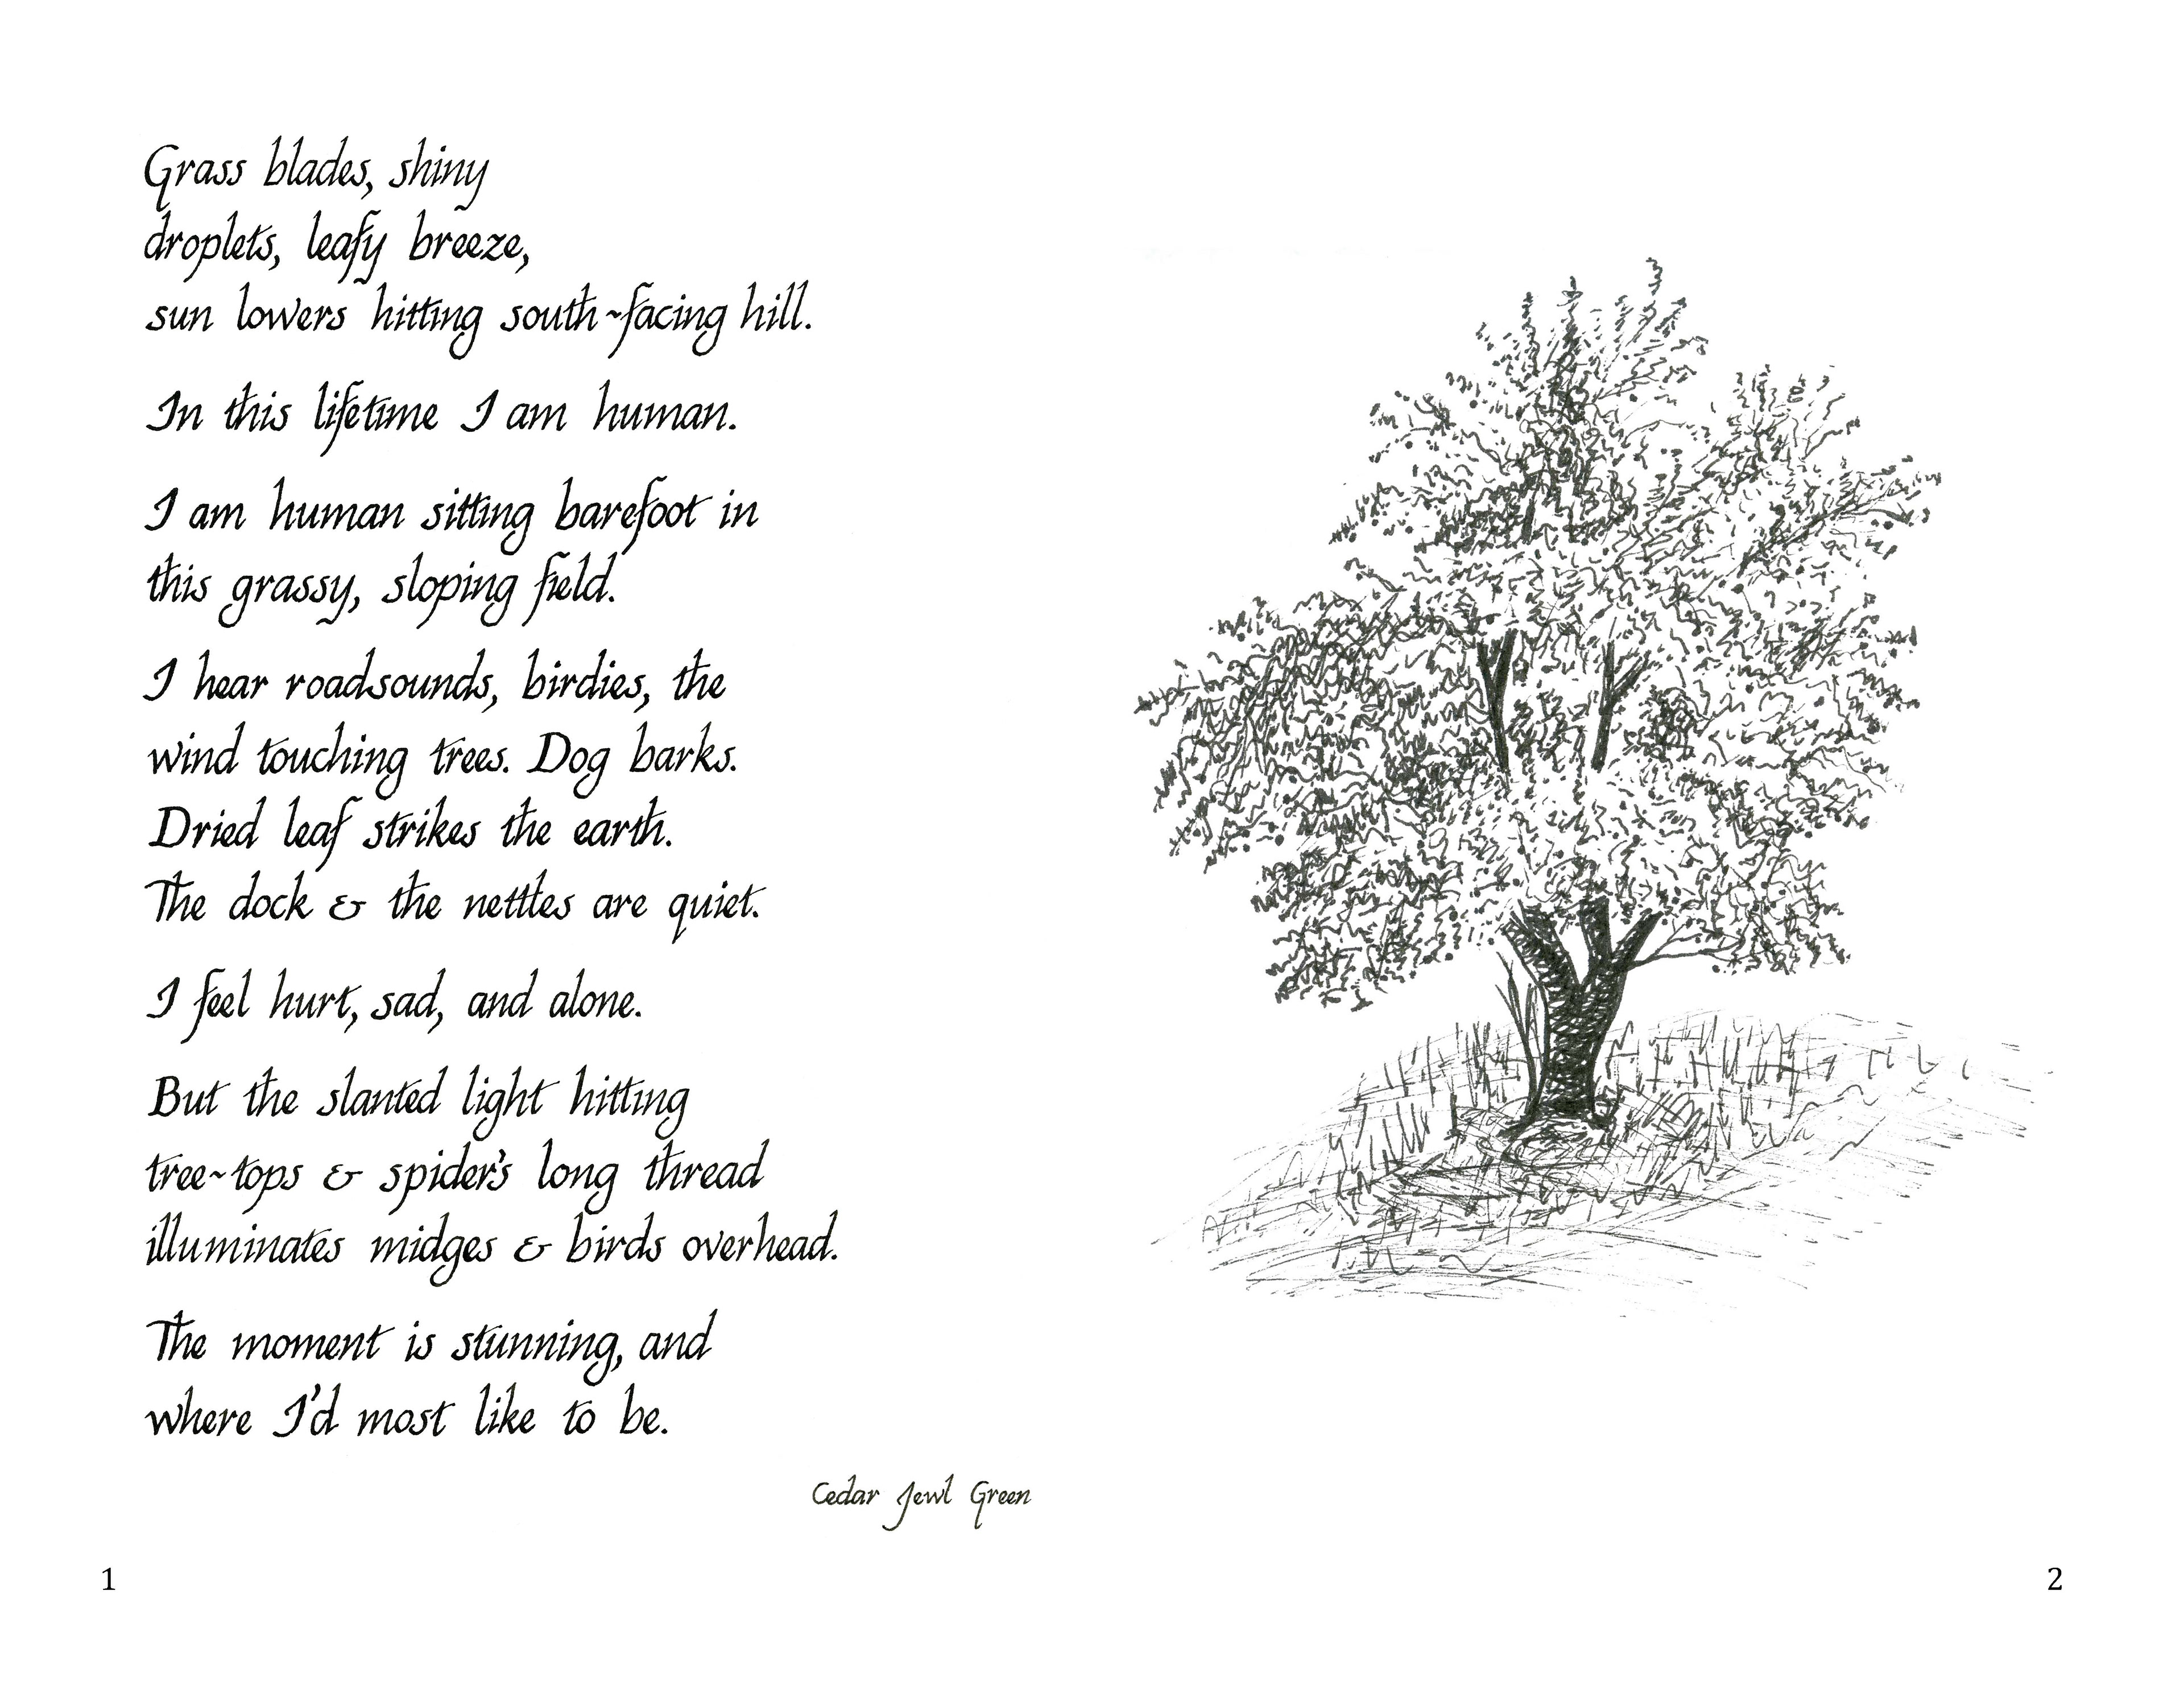 Grass blades, shiny
droplets, leafy breeze,
sun lowers hitting south~facing hill.
In this lifetime I am human.
I am human sitting barefoot in
this grassy, sloping field.
I hear roadsounds, birdies, the
wind touching trees. Dog barks.
Dried leaf strikes the earth.
The dock & the nettles are quiet.
I feel hurt, sad, and alone.
But the slanted light hitting
tree~tops & spider's long thread
illuminates midges & birds overhead.
The moment is stunning, and
where I'd most like to be.
Cedar Jewl Green
1
2